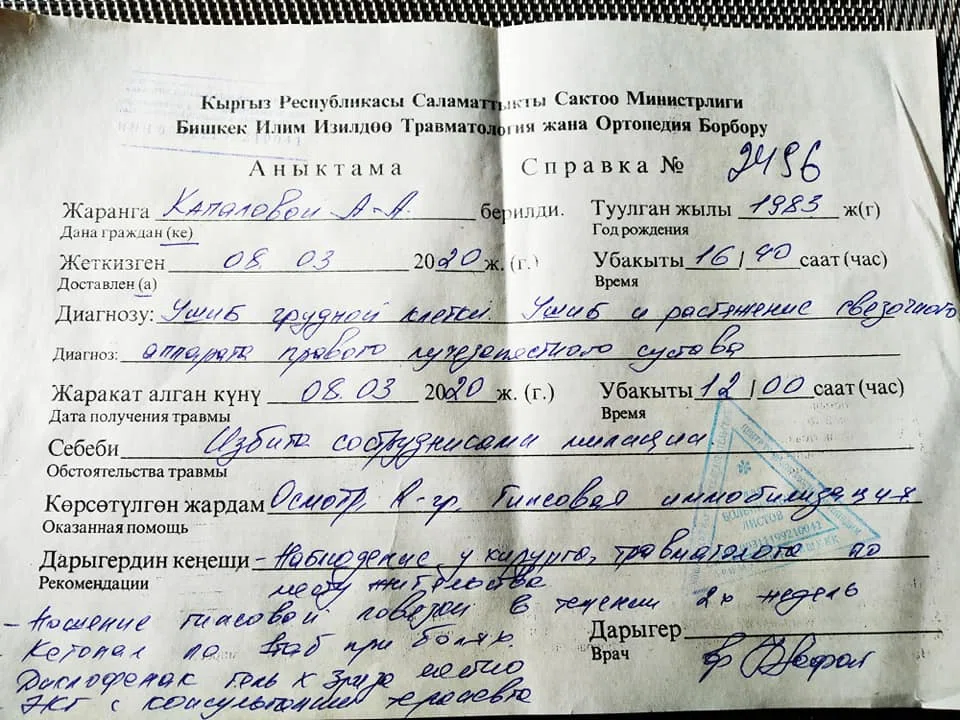 Кыргыз Республикасы Саламаттыкты Сактоо Министрлиги
Бишкек Илим Изилдөө Травматология жана Ортопедия Борбору
Аныктама Справка № 2496
Жаранга Капаловой А-А. берилди. Туулган жылы 1983 ж(г)
Дана граждан (ке) Год рождения
Жеткизген 08. 03 2020 ж. (г.) Убакыты 16/40 саат (час)
Доставлен (а) Время
Диагнозу: Ушиб грудной клетки. Ушиб и растяжение связочного
Диагноз: аппарата правого лучезапястного сустава
Жаракат алган күнү 08.03 2020 ж. (г.) Убакыты 12/00 саат (час)
Дата получения травмы Время
Себеби Избита сотрудниками милации
Обстоятельства травмы
Көрсөтүлгөн жардам Осмотр, R-гр. Гипсовая иммобилизация
Оказанная помощь
Дарыгердин кеңеши - Наблюдение у хирурга, травматолога по
Рекомендации месту жительства
- Ношение гипсовой повязки в течении 2х недель
- Кетонал по 1таб при болях. Дарыгер
Врач
Диклофенак гель х 3 раза местно
- ЭКГ с консультацией терапевта